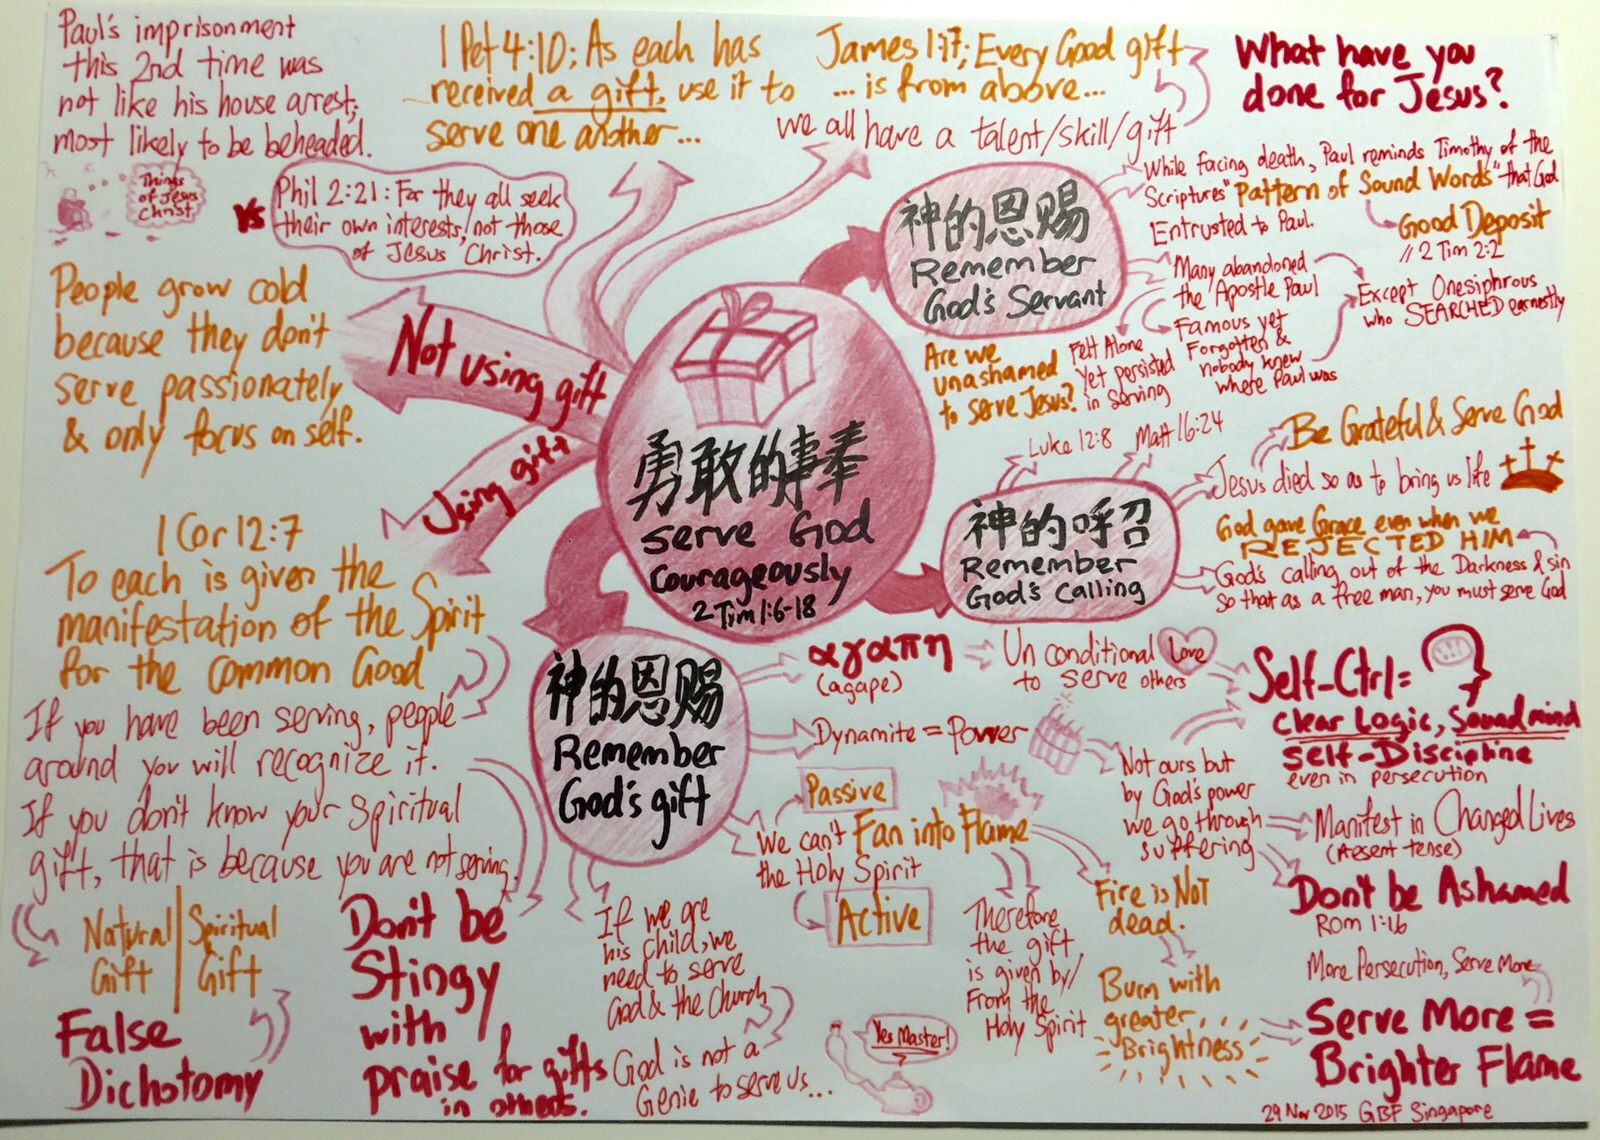 Paul's imprisonment
this 2nd time was
not like his house arrest;
most likely to be beheaded.
Things
of Jesus
Christ
VS
Phil 2:21: For they all seek
their own interests, not those
of Jesus Christ.
1 Pet 4:10: As each has
received a gift, use it to
serve one another...
James 1:17; Every Good gift
... is from above...
we all have a talent/skill/gift
What have you
done for Jesus?
People grow cold
because they don't
serve passionately
& only focus on self.
Not using gift
Using gift
勇敢的事奉
serve God
Courageously
2 Tim 1:6-18
神的恩赐
Remember
God's Servant
While facing death, Paul reminds Timothy of the
Scriptures "Pattern of Sound Words" that God
Entrusted to Paul.
Good Deposit
// 2 Tim 2:2
Many abandoned
the Apostle Paul
Except Onesiphrous
who SEARCHED earnestly
Famous yet
Forgotten &
nobody knew
where Paul was
Felt Alone
yet persisted
in serving
Are we
unashamed
to serve Jesus?
神的呼召
Remember
God's Calling
Luke 12:8
Matt 16:24
Be Grateful & Serve God
Jesus died so as to bring us life
God gave Grace even when we
REJECTED HIM
God's calling out of the Darkness & sin
so that as a free man, you must serve God
1 Cor 12:7
To each is given the
manifestation of the Spirit
for the common Good
If you have been serving, people
around you will recognize it.
If you don't know your Spiritual
gift, that is because you are not serving.
Natural Gift
Spiritual Gift
False
Dichotomy
神的恩赐
Remember
God's gift
Don't be
Stingy
with
praise for gifts
in others.
If we are
his child, we
need to serve
God & the Church
God is not a
Genie to serve us...
Yes Master!
αγαπη
(agape)
Unconditional Love
to serve others
Dynamite = Power
Passive
We can't Fan into Flame
the Holy Spirit
Active
Therefore
the gift
is given by/
From the
Holy Spirit
Fire is NOT
dead.
Burn with
greater
Brightness
Not ours but
by God's power
we go through
suffering
Self-Ctrl =
Clear Logic, Sound mind
Self-Discipline
even in persecution
Manifest in Changed Lives
(Aesent tense)
Don't be Ashamed
Rom 1:16
More Persecution, Serve More
Serve More =
Brighter Flame
29 Nov 2015 GBF Singapore